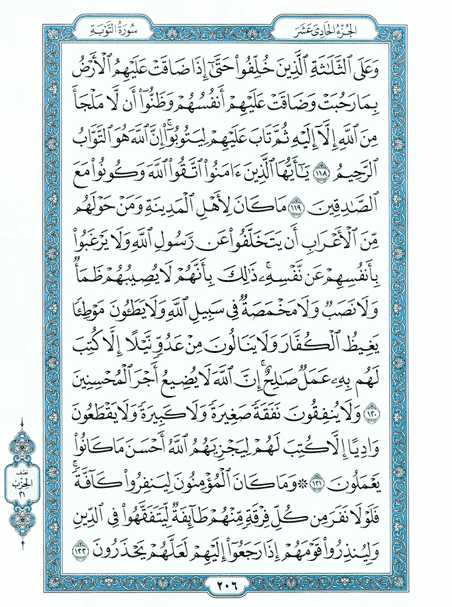 الجزء الحادي عشر
سورة التوبة
وَعَلَى ٱلثَّلَٰثَةِ ٱلَّذِينَ خُلِّفُوا۟ حَتَّىٰٓ إِذَا ضَاقَتْ عَلَيْهِمُ ٱلْأَرْضُ
بِمَا رَحُبَتْ وَضَاقَتْ عَلَيْهِمْ أَنفُسُهُمْ وَظَنُّوٓا۟ أَن لَّا مَلْجَأَ
مِنَ ٱللَّهِ إِلَّآ إِلَيْهِ ثُمَّ تَابَ عَلَيْهِمْ لِيَتُوبُوٓا۟ ۚ إِنَّ ٱللَّهَ هُوَ ٱلتَّوَّابُ
ٱلرَّحِيمُ ١١٨ يَٰٓأَيُّهَا ٱلَّذِينَ ءَامَنُوا۟ ٱتَّقُوا۟ ٱللَّهَ وَكُونُوا۟ مَعَ
ٱلصَّٰدِقِينَ ١١٩ مَا كَانَ لِأَهْلِ ٱلْمَدِينَةِ وَمَنْ حَوْلَهُم
مِّنَ ٱلْأَعْرَابِ أَن يَتَخَلَّفُوا۟ عَن رَّسُولِ ٱللَّهِ وَلَا يَرْغَبُوا۟
بِأَنفُسِهِمْ عَن نَّفْسِهِۦ ۚ ذَٰلِكَ بِأَنَّهُمْ لَا يُصِيبُهُمْ ظَمَأٌ
وَلَا نَصَبٌ وَلَا مَخْمَصَةٌ فِى سَبِيلِ ٱللَّهِ وَلَا يَطَـُٔونَ مَوْطِئًا
يَغِيظُ ٱلْكُفَّارَ وَلَا يَنَالُونَ مِنْ عَدُوٍّ نَّيْلًا إِلَّا كُتِبَ
لَهُم بِهِۦ عَمَلٌ صَٰلِحٌ ۚ إِنَّ ٱللَّهَ لَا يُضِيعُ أَجْرَ ٱلْمُحْسِنِينَ
١٢٠ وَلَا يُنفِقُونَ نَفَقَةً صَغِيرَةً وَلَا كَبِيرَةً وَلَا يَقْطَعُونَ
وَادِيًا إِلَّا كُتِبَ لَهُمْ لِيَجْزِيَهُمُ ٱللَّهُ أَحْسَنَ مَا كَانُوا۟
يَعْمَلُونَ ١٢١ ۞ وَمَا كَانَ ٱلْمُؤْمِنُونَ لِيَنفِرُوا۟ كَآفَّةً ۚ
فَلَوْلَا نَفَرَ مِن كُلِّ فِرْقَةٍ مِّنْهُمْ طَآئِفَةٌ لِّيَتَفَقَّهُوا۟ فِى ٱلدِّينِ
وَلِيُنذِرُوا۟ قَوْمَهُمْ إِذَا رَجَعُوٓا۟ إِلَيْهِمْ لَعَلَّهُمْ يَحْذَرُونَ ١٢٢
نصف
الحزب
٢١
٢٠٦